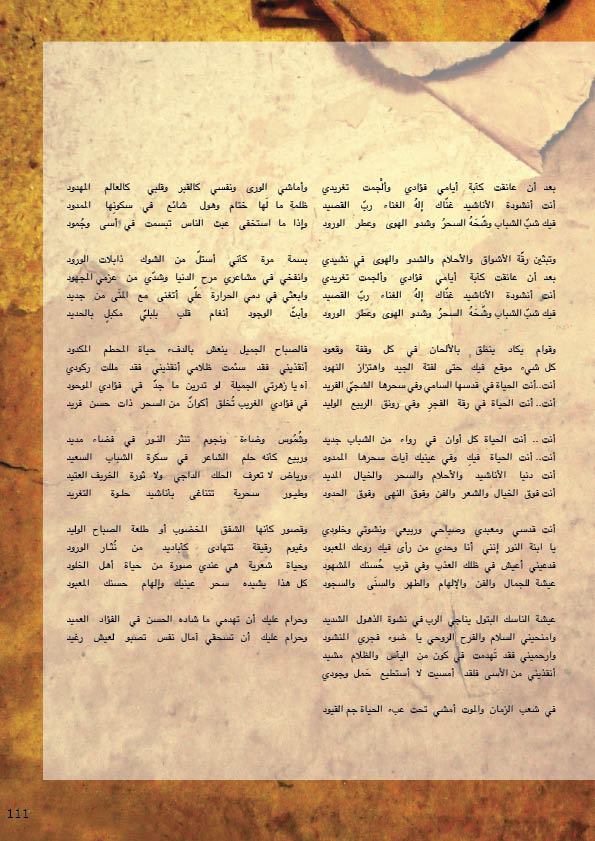 بعد أن عانقت كآبة أيامي فؤادي وألْجمت تغريدي
أنت أنشودة الأناشيد غنّاك إلهُ الغناء ربّ القصيد
فيك شبّ الشباب وشّحَهُ السحرُ وشدو الهوى وعطر الورود
وتبثين رقّة الأشواق والأحلام والشدو والهوى في نشيدي
بعد أن عانقت كآبة أيامي فؤادي وألجمت تغريدي
أنت أنشودة الأناشيد غنّاك إلهُ الغناء ربّ القصيد
فيك شبّ الشباب وشّحَهُ السحرُ وشدو الهوى وعَطر الورود
وقوام يكاد ينطق بالألحان في كل وقفة وقعود
كل شيء موقع فيك حتى لفتة الجيد واهتزاز النهود
أنت..أنت الحياة في قدسها السامي وفي سحرها الشجيّ الفريد
أنت.. أنت الحياة في رقة الفجر وفي رونق الربيع الوليد
أنت .. أنت الحياة كل أوان في رواء من الشباب جديد
أنت.. أنت الحياة فيكِ وفي عينيك آيات سحرها الممدود
أنت دنيا الأناشيد والأحلام والسحر والخيال المديد
أنت فوق الخيال والشعر والفن وفوق النهى وفوق الحدود
أنت قدسي ومعبدي وصباحي وربيعي ونشوتي وخلودي
يا ابنة النور إنني أنا وحدي من رأى فيك روعك المعبود
فدعيني أعيش في ظلك العذب وفي قرب حُسنك المشهود
عيشة للجمال والفن والإلهام والطهر والسنَى والسجود
عيشة الناسك البتول يناجي الرب في نشوة الذهول الشديد
وامنحيني السلام والفرح الروحي يا ضوء فجري المنشود
وارحميني فقد تَهدمت في كون من اليأس والظلام مشيد
أنقذيني من الأسى فلقد أمسيت لا أستطيع حَمل وجودي
في شعب الزمان والموت أمشي تحت عبء الحياة جم القيود
وأماشي الورى ونفسي كالقبر وقلبي كالعالم المهدود
ظلمة ما لَها ختام وهول شائع في سكونها الممدود
وإذا ما استخفى عبث الناس تبسمت في أسى وجُمود
بسمة مرة كأني أستلّ من الشوك ذابلات الورود
وانفخي في مشاعري مرح الدنيا وشدّي من عزمي المجهود
وابعثي في دمي الحرارة علّي أتغنى مع المنَى من جديد
وأبثّ الوجود أنغام قلب بلبليّ مكبل بالحديد
فالصباح الجميل ينعش بالدفء حياة المحطم المكدود
أنقذيني فقد سئمت ظلامي أنقذيني فقد مللت ركودي
آه يا زهرتي الجميلة لو تدرين ما جدّ في فؤادي الموحود
في فؤادي الغريب تُخلق أكوانٌ من السحر ذات حسن فريد
وشُموس وضاءة ونجوم تنثر النـور في فضاء مديد
وربيع كأنه حلم الشاعر في سكرة الشباب السعيد
ورياض لا تعرف الحلك الداجي ولا ثورة الخريف العتيد
وطيـور سحرية تتناغى بأناشيد حلـوة التغريد
وقصور كأنها الشفق المخضوب أو طلعة الصباح الوليد
وغيوم رقيقة تتهادى كأباديد من نُثـار الورود
وحياة شعرية هي عندي صورة من حياة أهل الخلود
كل هذا يشيده سحر عينيك وإلهام حسنك المعبود
وحرام عليك أن تهدمي ما شاده الحسن في الفؤاد العميد
وحرام عليك أن تسحقي آمال نفس تصبو لعيش رغيد
111